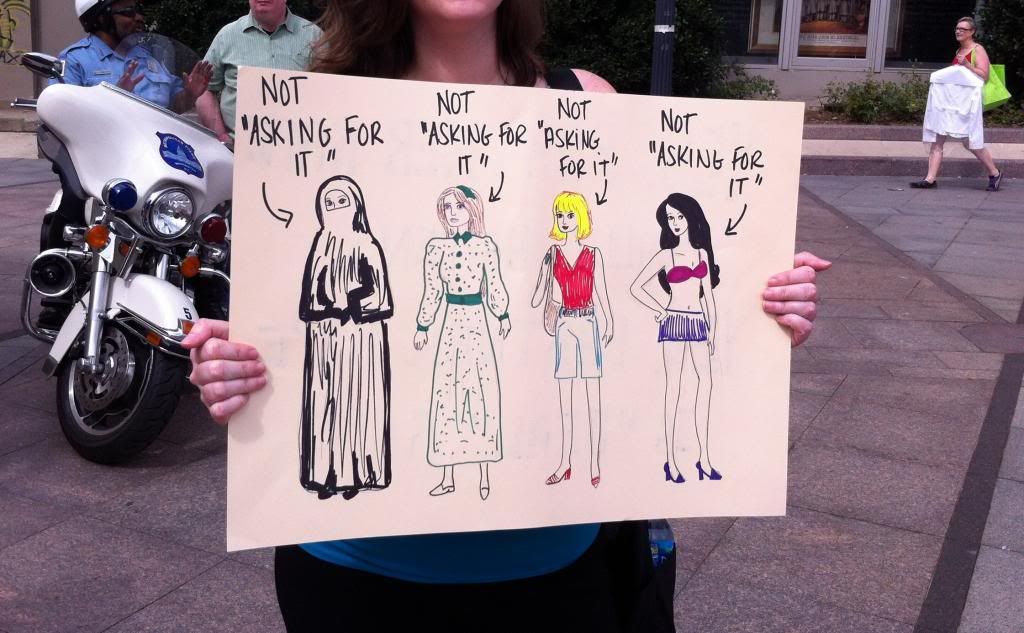 NOT
"ASKING FOR
IT"
NOT
"ASKING FOR
IT"
NOT
"ASKING
FOR IT"
NOT
"ASKING FOR
IT"
5